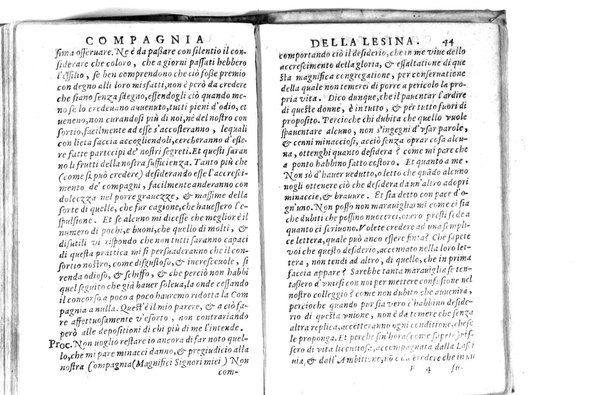 COMPAGNIA
sima osseruare. Ne è da passare con silentio il con
siderare che coloro, che a giorni passati hebbero
l'essilio, se ben comprendono che ciò fosse premio
con degno alli loro misfatti, non è però da credere
che siano senza sdegno, essendogli ciò quando me-
no se lo credeuano auuenuto, tutti pieni d'odio, et
ueneno, non curandosi più di noi, né del nostro con
sortio, facilmente ad esse s'accosteranno, le quali
con lieta faccia accogliendoli, cercheranno d'esse-
re fatte partecipi de' nostri segreti. Et questi saran
no li frutti della nostra sufficienza. Tanto più che
(come si può credere) desiderando esse l'accresci-
mento de' compagni, facilmente anderanno con
dolcezza nel porre grauezze, & massime della
sorte di quelle, che fur cagione, che hauessero l'e-
spulsione. Et se alcuno mi dicesse che megliore è il
numero di pochi, e buoni, che quello di molti, &
disutili ui rispondo che non tutti saranno capaci
di questa prattica mi si persuaderanno che il con-
sortio nostro, come disgustoso, & increscevole, si
renda odioso, & schiffo, & che perciò non habbi
quel seguito che già hauer soleua, la onde cessando
il concorso a poco a poco hauremo ridotta la Com
pagnia a nulla. Quest'è il mio parere, & a ciò fa-
re affettuosamente v'esorto, non contrariando
però alle depositioni di chi più di me l'intende.
Proc. Non uoglio restare io ancora di far noto quel-
lo, che mi pare minacci danno, & pregiudicio alla
nostra Compagnia (Magnifici Signori miei) Non
com-
DELLA LESINA. 44
comportando ciò il desiderio, che in me viue dello
accrescimento della gloria, & essaltatione di que
sta magnifica congregatione, per conseruatione
della quale non temerei di porre a pericolo la pro-
pria vita. Dico dunque, che il pauentar l'ardire
di queste donne, è in tutto, & per tutto fuori di
proposito. Percioche chi dubita che quello vuole
spauentare alcuno, non s'ingegni d'vsar parole,
& cenni minacciosi, acciò senza oprar cosa alcu-
na, ottenghi quanto desidera? come mi pare che
a ponto habbino fatto costoro. Et quanto a me.
Non sò d'hauer veduto, o letto che quādo alcuno
nogli ottenere ciò che desidera da un'altro adopri
minaccie, & braure. Et sia detto con pace d'o-
gn'uno. Non posso non marauigliarmi come ci sia
che dubiti che possin nuocerci, otero presti fede a
quanto ci scriuono. Volete credere ad una sempli-
ce lettera, quale può anco essere finta? Che sapete
voi che questo desiderio, accennato nella loro lette-
ra, non tendi ad altro, di quelle, che in prima
faccia appare? Sarebbe tanta marauiglia se ten-
tassero d'vnirsi con noi per mettere confusione nel
nostro colleggio? come non dubitate che auuenirà,
percioche quando pur sia vero c'habbino deside-
rio di questa vnione, non è da temere che senza
altra replica, accetteranno ogni conditione, che se
le proponga. Et perche sin'hora (come sapete) pi
sero di vita licentiosa, accompagnata dalla Lasci
uia, & dall'Ambitione, nō è da credere che in un
F 4 su-